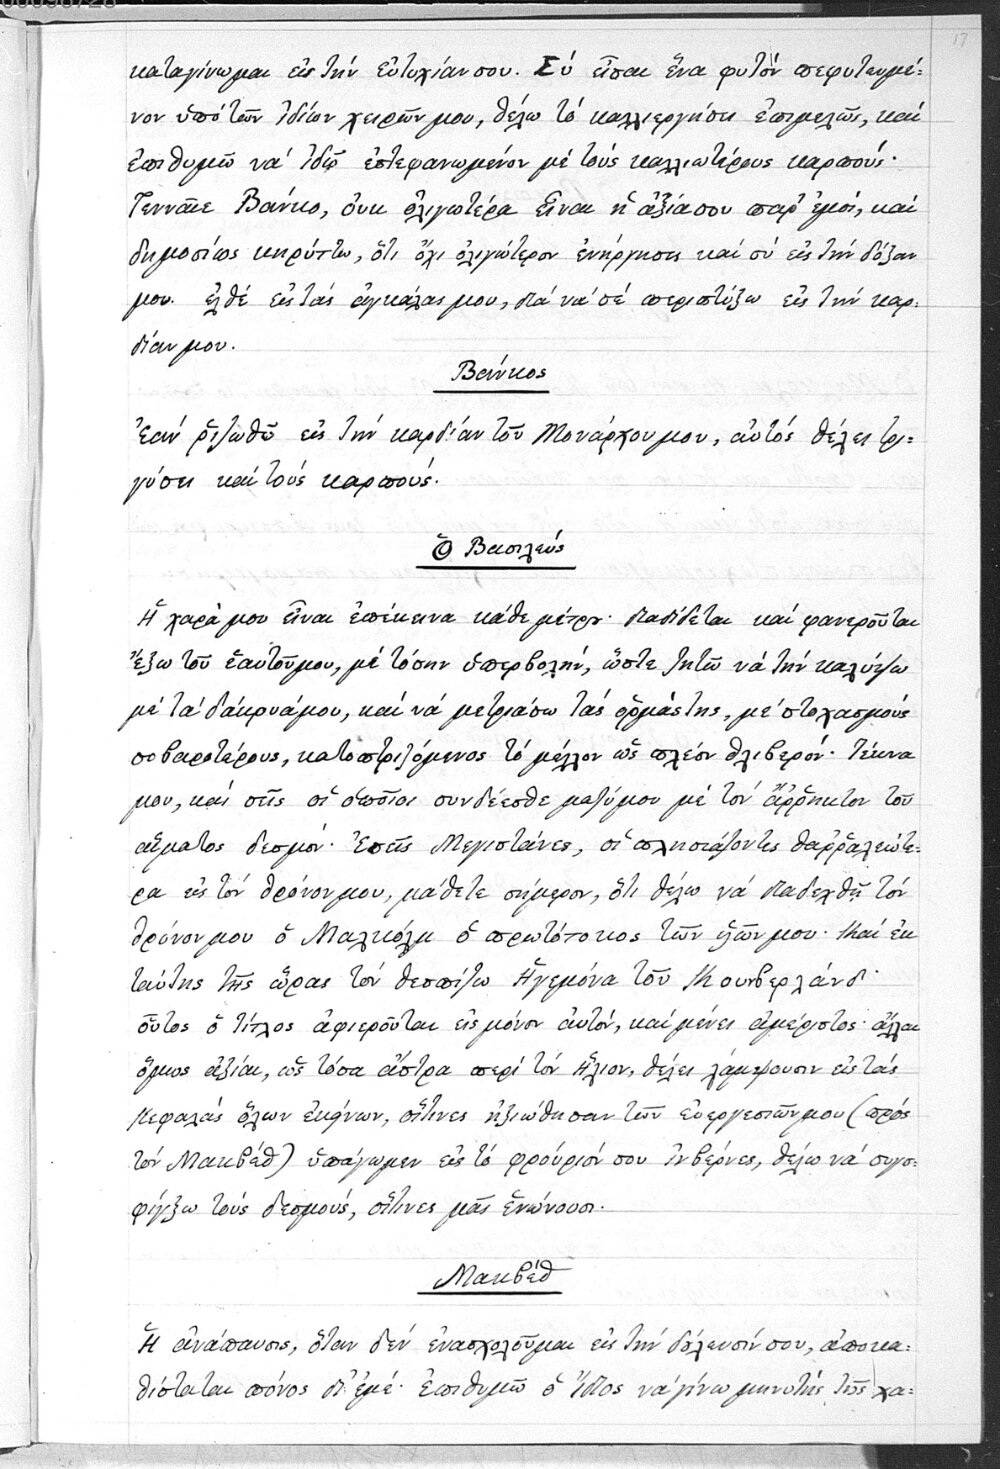 17
καταγίνωμαι εἰς τήν εὐτυχίαν σου. Σύ εἶσαι ἕνα φυτόν πεφυτευμέ=
νον ὑπό τῶν ἰδίων χειρῶν μου, θέλω τό καλλιεργήσει ἐπιμελῶς, καί
ἐπιθυμῶ νά ἰδῶ ἐστεφανωμένον μέ τούς καλλιωτέρους καρπούς·
Γενναῖε Βάνκο, οὐκ ὀλιγωτέρα εἶναι ἡ ἀξία σου παρ' ἐμοί, καί
δημοσίως κηρύττω, ὅτι ὄχι ὀλιγώτερον ἐνήργησες καί σύ εἰς τήν δόξαν
μου. ἐλθέ εἰς τάς ἀγκάλας μου, διά νά σέ περιπτύξω εἰς τήν καρ=
δίαν μου.
Βάνκος
Ἐάν ῥιζωθῶ εἰς τήν καρδίαν τοῦ Μονάρχου μου, αὐτός θέλει τρυ=
γήσει καί τούς καρπούς.
Ὁ Βασιλεύς
Ἡ χαρά μου εἶναι ἐπέκεινα κάθε μέτρου· διαδίδεται καί φανεροῦται
ἔξω τοῦ ἑαυτοῦ μου, μέ τόσην ὑπερβολήν, ὥστε ζητῶ νά τήν καλύψω
μέ τά δάκρυά μου, καί νά μετριάσω τάς ὁρμάς της, μέ στοχασμούς
σοβαροτέρους, κατοπτριζόμενος τό μέλλον ὡς πλέον θλιβερόν· Τέκνα
μου, καί σεῖς οἱ ὁποῖοι συνδέεσθε μαζύ μου μέ τόν ἄῤῥηκτον τοῦ
αἵματος δεσμόν· Ἐσεῖς Μεγιστάνες, οἱ πλησιάζοντες θαῤῥαλεώτε=
ρα εἰς τόν θρόνον μου, μάθετε σήμερον, ὅτι θέλω νά διαδεχθῇ τόν
θρόνον μου ὁ Μαλκόλμ ὁ πρωτότοκος τῶν υἱῶν μου· Καί ἐκ
ταύτης τῆς ὥρας τόν θεσπίζω Ἡγεμόνα τοῦ Κουνβερλάνδ·
οὗτος ὁ τίτλος ἀφιεροῦται εἰς μόνον αὐτόν, καί μένει ἀμέριστος· ἄλλαι
ὅμως ἀξίαι, ὡς τόσα ἄστρα περί τόν ἥλιον, θέλει λάμψουσιν εἰς τάς
κεφαλάς ὅλων ἐκείνων, οἵτινες ἠξιώθησαν τῶν εὐεργεσιῶν μου (πρός
τόν Μακβέθ) ὑπάγωμεν εἰς τό φρούριόν σου Ἰνβέρνες, θέλω νά συσ=
φίγξω τούς δεσμούς, οἵτινες μᾶς ἑνώνουσι·
Μακβέθ
Ἡ ἀνάπαυσις, ὅταν δέν ἐνασχολοῦμαι εἰς τήν δούλευσίν σου, ἀποκα=
θίσταται πόνος δι' ἐμέ· ἐπιθυμῶ ὁ ἴδιος νά γίνω μηνυτής τῆς χα=